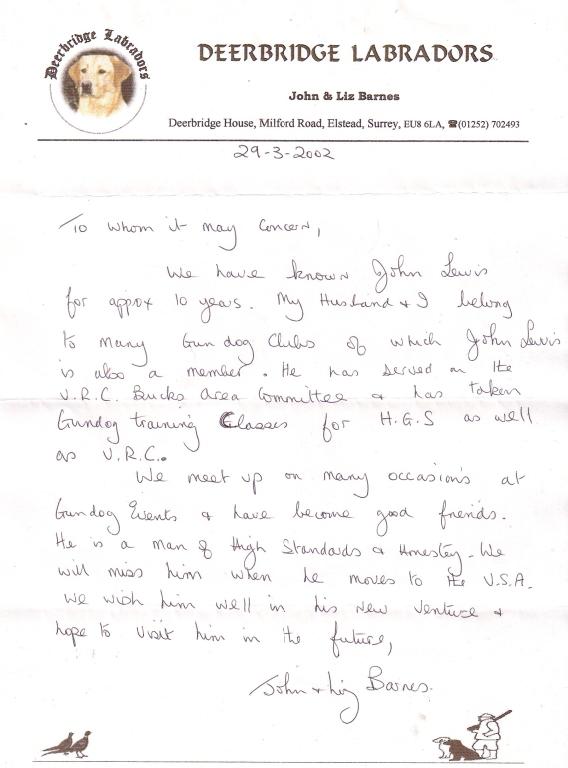 Deerbridge Labradors
DEERBRIDGE LABRADORS
John & Liz Barnes
Deerbridge House, Milford Road, Elstead, Surrey, EU8 6LA, ☎(01252) 702493
29-3-2002
To whom it may concern,
We have known John Lewis
for approx 10 years. My Husband & I belong
to many Gun dog Clubs of which John Lewis
is also a member. He has served on the
U.R.C. Bucks area Committee & has taken
Gundog training Classes for H.G.S as well
as U.R.C.
We meet up on many occasions at
Gundog Events & have become good friends.
He is a man of High Standards & Honestey. We
will miss him when he moves to the U.S.A.
We wish him well in his new venture &
hope to visit him in the future,
John & Liz Barnes.